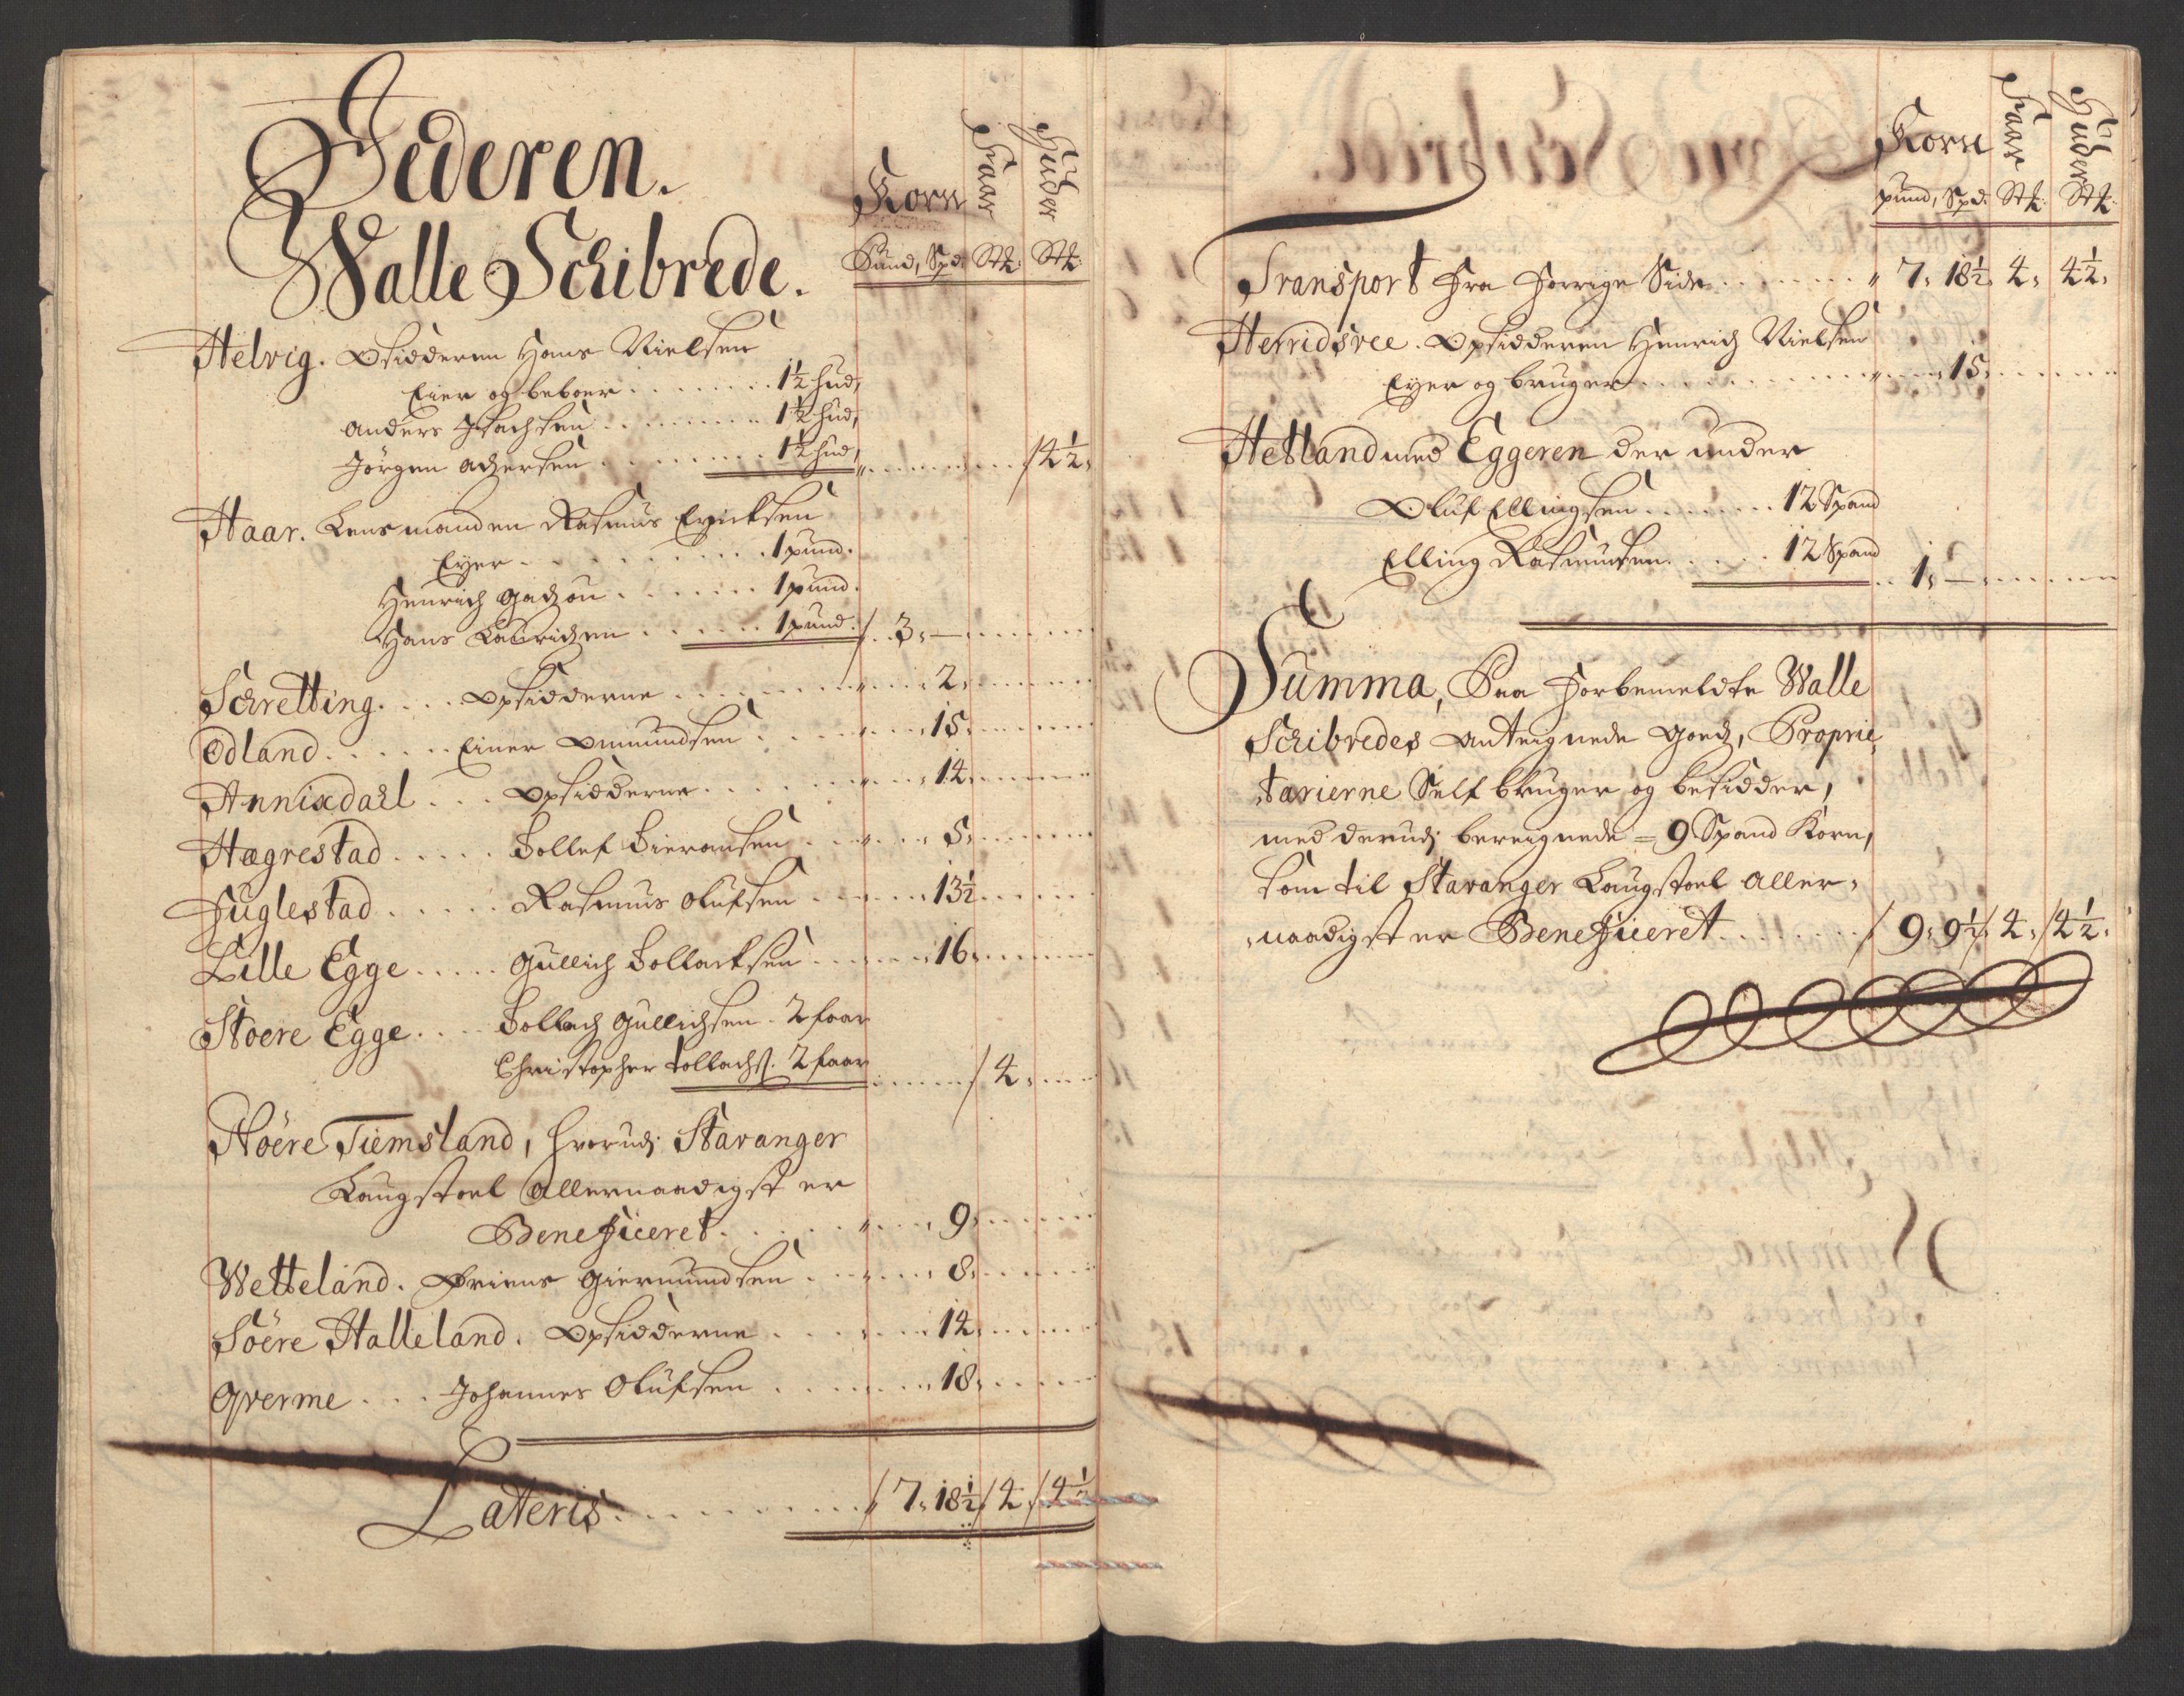 Jederen.
Walle Schibrede.
Korn Faar Huder
Pund, Spd: Stk: Stk:
Helvig. Obsidderen Hans Nielsen
Eier og beboer . . . . . . . 1½ hud,
Anders Isachsen . . . . . . . 1½ hud,
Jörgen Adzersen . . . . . . . 1½ hud, . . . . . / 4½,
Haar. Lensmanden Rasmus Ericksen
Eyer . . . . . . . . 1 pund.
Henrich Gadzou . . . . . . 1 pund.
Hans Lauridzen . . . . . . 1 pund. /. 3, —
Schretting. . . . Opsidderne . . . . . . . 2,
Odland. . . . . . Einer Omundsen . . . . . . 15,
Annixdall . . . Opsidderne . . . . . . . 14,
Hægrestad . . . . . Tollef Tieransen . . . . . 5,
Fuglestad . . . . . Rasmus Olufsen . . . . . 13½
Lille Egge . . . . . Gullich Tollacksen . . . . . 16,
Stoere Egge . . . . Tollach Gullichsen . 2 faar
Christopher Tollachs. 2 faar . . . . . / 4,
Nöere Tiemsland, hvorudj Stavanger
Laugstoel Allernaadigst er
Beneficeret . . . . . . . 9,
Wetteland. Briens Giermundsen . . . . . 8,
Söere Halleland. Opsidderne . . . . . . 14,
Qverme . . . . Johannes Olufsen . . . . . . 18,
Lateris . . . . . . . . . / 7, 18½ / 4, / 4½
Korn Faar Huder
pund, Spd: Stk: Stk:
Transport fra forrige Side . . . . . . . 7, 18½, 4, 4½,
Herridsvee. Opsidderen Henrich Nielsen
Eyer og bruger . . . . . . . . . . . 15,
Hetland med Eggeren der under
Oluf Ellingsen . . . . . . . 12 Spand
Elling Rasmusen . . . . . 12 Spand . . 1, —
Summa, Paa forbemeldte Walle
Schibredes Anteignede Goedz, Proprie,
,tarierne Self bruger og besidder,
med derudj bereignede = 9 Spand Korn,
som til Stavanger Laugstoel Aller,
,naadigst er Beneficeret . . . . . . . / 9, 9½ / 4, / 4½,